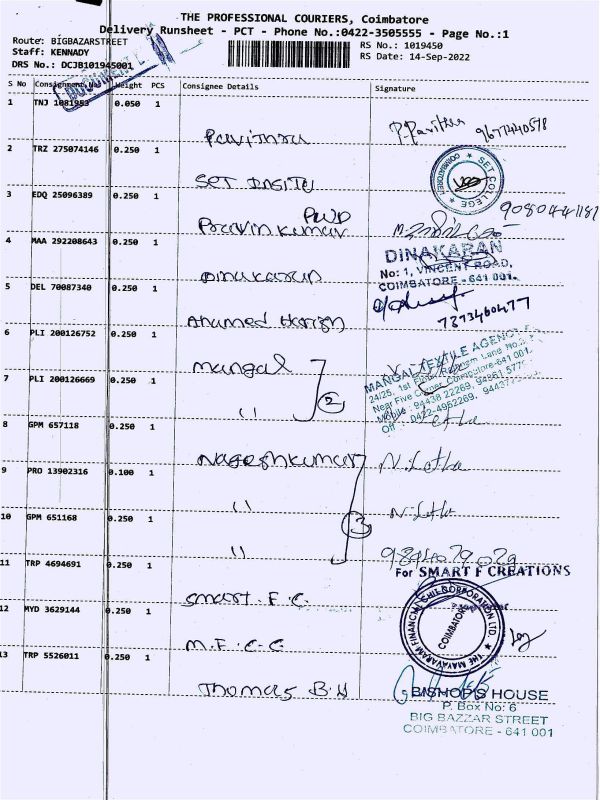 THE PROFESSIONAL COURIERS, Coimbatore
Delivery Runsheet - PCT - Phone No.:0422-3505555 - Page No.:1
Route: BIGBAZARSTREET
Staff: KENNADY
DRS No.: DCJB101945001
RS No.: 1019450
RS Date: 14-Sep-2022
S No Consignment No Weight PCS Consignee Details Signature
1 TNJ 1081953 0.050 1 Pavithra P. Pavithra 9677440578
2 TRZ 275074146 0.250 1 SET INSITU SET COLLEGE COIMBATORE
3 EDQ 25096389 0.250 1 PWD Pravin Kumar 9080441187
4 MAA 292208643 0.250 1 Dinakaran DINAKARAN
No: 1, VINCENT ROAD,
COIMBATORE - 641 001.
5 DEL 70087340 0.250 1 Ahamed Harish 7373460477
6 PLI 200126752 0.250 1 mangal MANGAL TEXTILE AGENCIES
7 PLI 200126669 0.250 1 " 2
24/25, 1st Floor, Lane No.2
Near Five Corner, Coimbatore-641 001.
Mobile : 94438 22269,
Off : 0422-4952269,
8 GPM 657118 0.250 1 Nageshkumar N. Latha
9 PRO 13902316 0.100 1 " N. Latha
10 GPM 651168 0.250 1 " 3 9894079029
11 TRP 4694691 0.250 1 Smart . F. C. For SMART F CREATIONS
12 MYD 3629144 0.250 1 M.F.C.C THE MAYAVARAM FINANCIAL CHIT CORPORATION LTD. COIMBATORE
13 TRP 5526011 0.250 1 Thomas B.H BISHOP'S HOUSE
P. Box No: 6
BIG BAZZAR STREET
COIMBATORE - 641 001